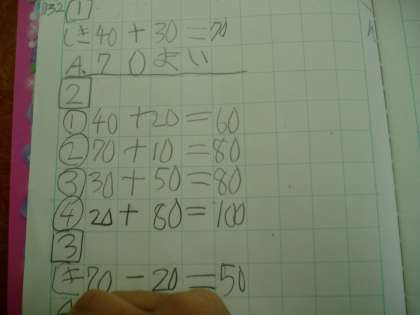 P32 1
しき 40 + 30 = 70
A. 70まい
2
① 40 + 20 = 60
② 70 + 10 = 80
③ 30 + 50 = 80
④ 20 + 80 = 100
3
しき 70 - 20 = 50